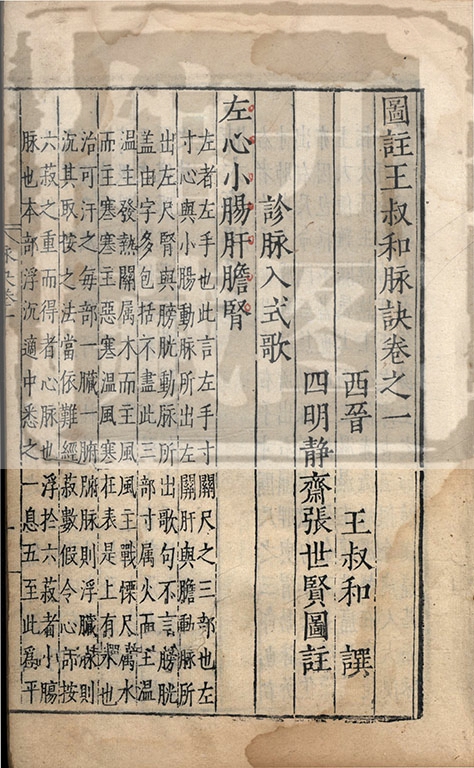 圖註王叔和脉訣卷之一
西晉 王叔和 譔
四明靜齋張世賢圖註
診脉入式歌
左心小腸肝膽腎
左者左手也此言左手寸關尺之三部也左
寸心與小腸動脉所出左關肝與膽動脉所
出左尺腎與膀胱動脉所出歌句不言膀胱
蓋由字多包括不盡此三部寸属火而主温
温主發熱關属木而主風風主戰慄尺属水
而主寒寒主惡寒温風寒在表是上有来也
治可汗之每部一臟一腑腑脉則浮臟脉則
沉其取按之法當依難經菽數假令心部按
六菽之重而得者心脉也浮於六菽者小腸
脉也本部浮沉適中悉之一息五至此爲平